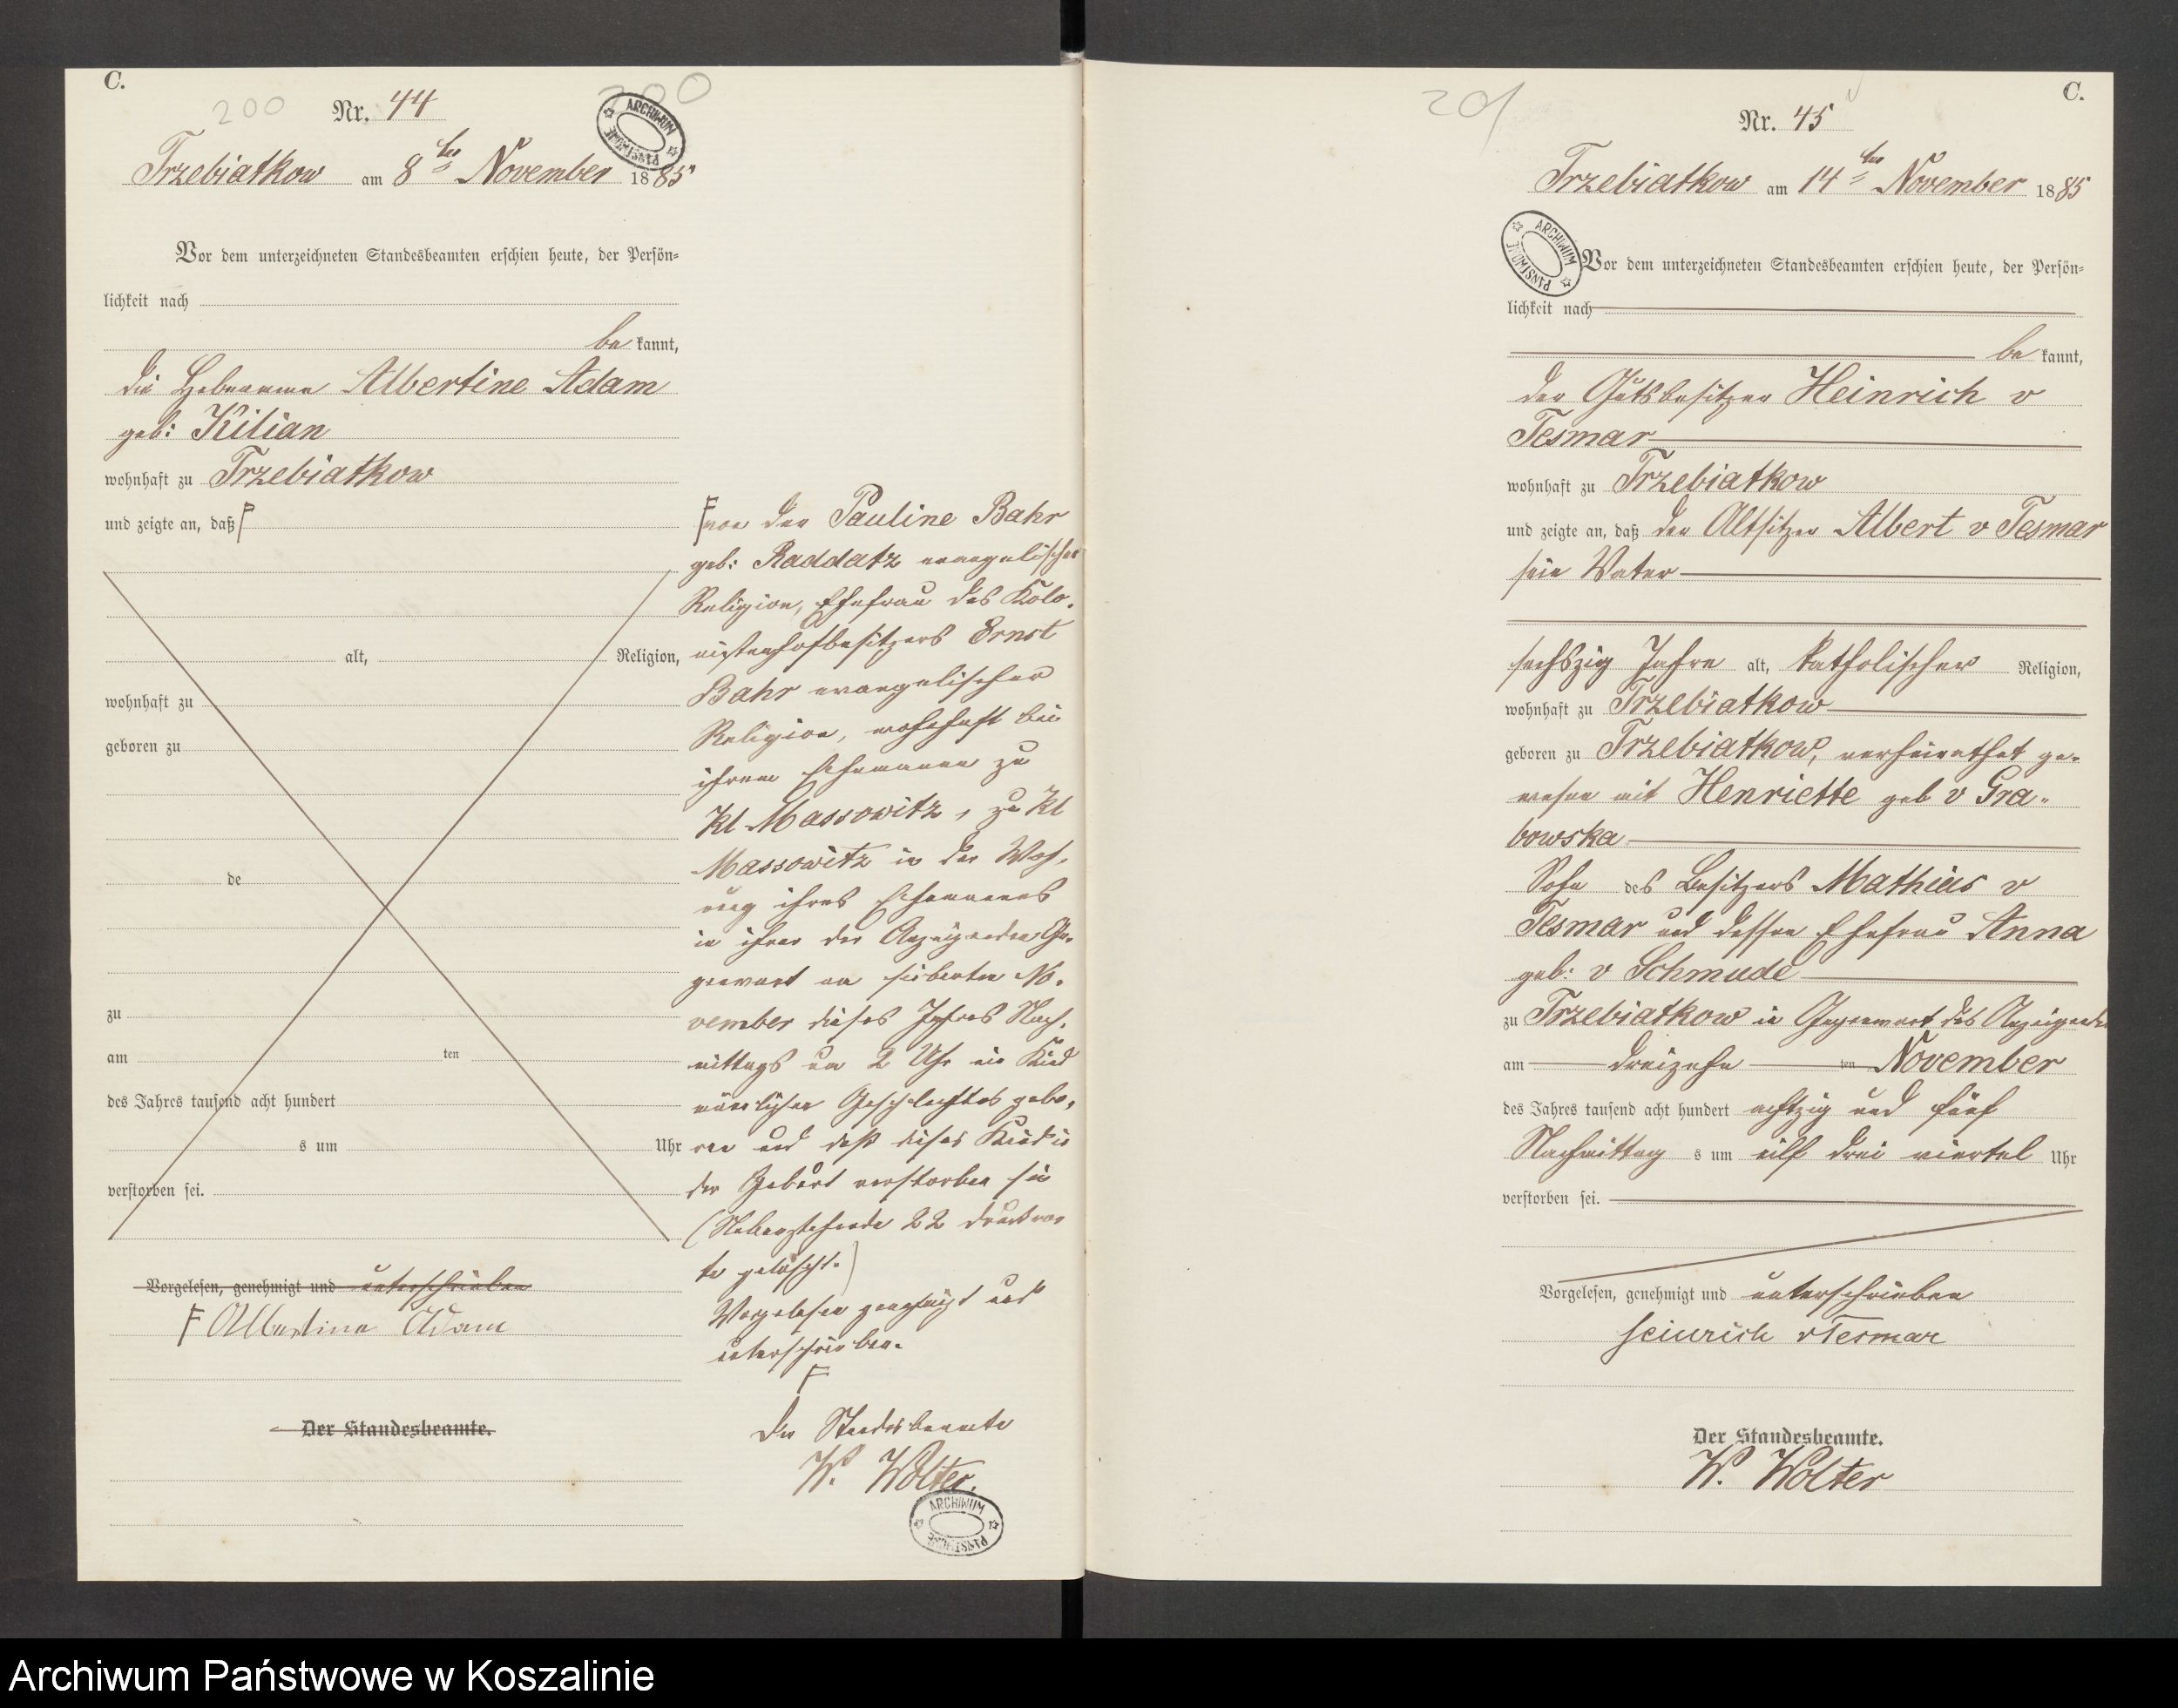 C.
200
200
Nr. 44
ARCHIWUM PAŃSTWOWE
Trzebiatkow am 8ten November 1885
Vor dem unterzeichneten Standesbeamten erschien heute, der Persön-
lichkeit nach
be kannt,
die Hebamme Albertine Adam
geb: Kilian
wohnhaft zu Trzebiatkow
und zeigte an, daß
alt, Religion,
wohnhaft zu
geboren zu
de
zu
am ten
des Jahres tausend acht hundert
s um Uhr
verstorben sei.
Vorgelesen, genehmigt und unterschrieben
Albertine Adam
Der Standesbeamte.
von der Pauline Bahr
geb: Raddatz evangelischer
Religion, Ehefrau des Kolo-
nistenhofbesitzers Ernst
Bahr evangelischer
Religion, wohnhaft bei
ihrem Ehemanne zu
Kl Massowitz, zu Kl
Massowitz in der Woh-
nung ihres Ehemannes
in ihrer der Anzeigenden Ge-
genwart am siebenten No-
vember dieses Jahres Nach-
mittags um 2 Uhr ein Kind
männlichen Geschlechtes gebo-
ren und daß dieses Kind in
der Geburt verstorben sei
(Nebenstehende 22 Druckwor-
te gelöscht.)
Vorgelesen genehmigt und
unterschrieben.
Der Standesbeamte
W. Wolter.
ARCHIWUM PAŃSTWOWE
201
C.
Nr. 45
Trzebiatkow am 14ten November 1885
ARCHIWUM PAŃSTWOWE
Vor dem unterzeichneten Standesbeamten erschien heute, der Persön-
lichkeit nach
be kannt,
der Gutsbesitzer Heinrich v
Tesmar
wohnhaft zu Trzebiatkow
und zeigte an, daß der Altsitzer Albert v Tesmar
sein Vater
sechszig Jahre alt, katholischer Religion,
wohnhaft zu Trzebiatkow
geboren zu Trzebiatkow, verheirathet ge-
wesen mit Henriette geb v Gra-
bowska
Sohn des Besitzers Mathias v
Tesmar und dessen Ehefrau Anna
geb: v Schmude
zu Trzebiatkow in Gegenwart des Anzeigenden
am dreizehn ten November
des Jahres tausend acht hundert achtzig und fünf
Nachmittag s um eilf drei viertel Uhr
verstorben sei.
Vorgelesen, genehmigt und unterschrieben
Heinrich vTesmar
Der Standesbeamte.
W. Wolter
Archiwum Państwowe w Koszalinie